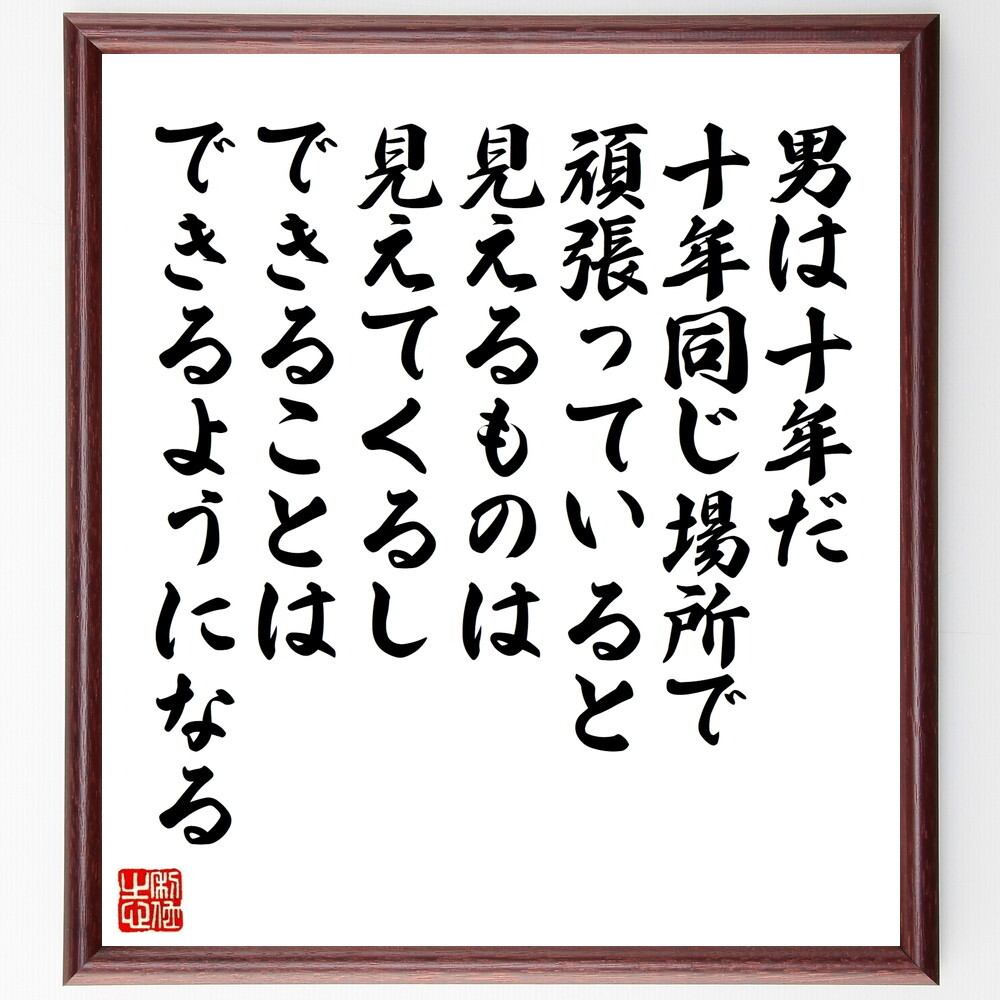 男は十年だ
十年同じ場所で
頑張っていると
見えるものは
見えてくるし
できることは
できるようになる